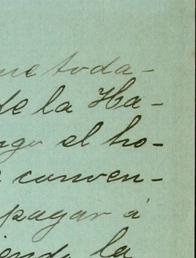 me toda-
de la Ha-
ngo el ho-
conven-
pagar á
iendo la